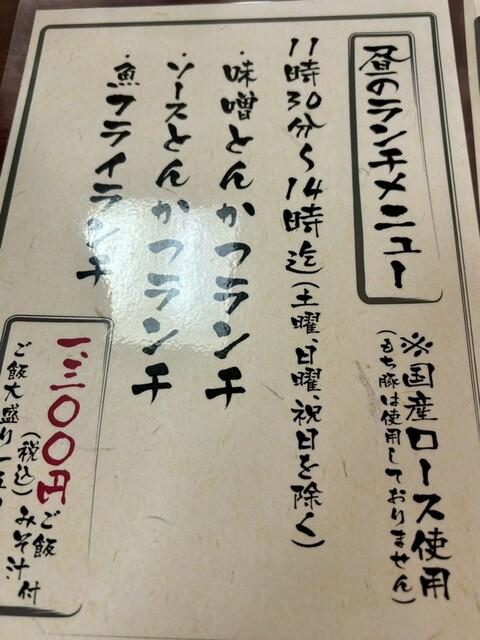 昼のランチメニュー
※国産ロース使用
(もち豚は使用しておりません)
11時30分~14時迄(土曜、日曜、祝日を除く)
・味噌とんかつランチ
・ソースとんかつランチ
・魚フライランチ
一、三〇〇円
(税込)
ご飯
みそ汁付
ご飯大盛り一五